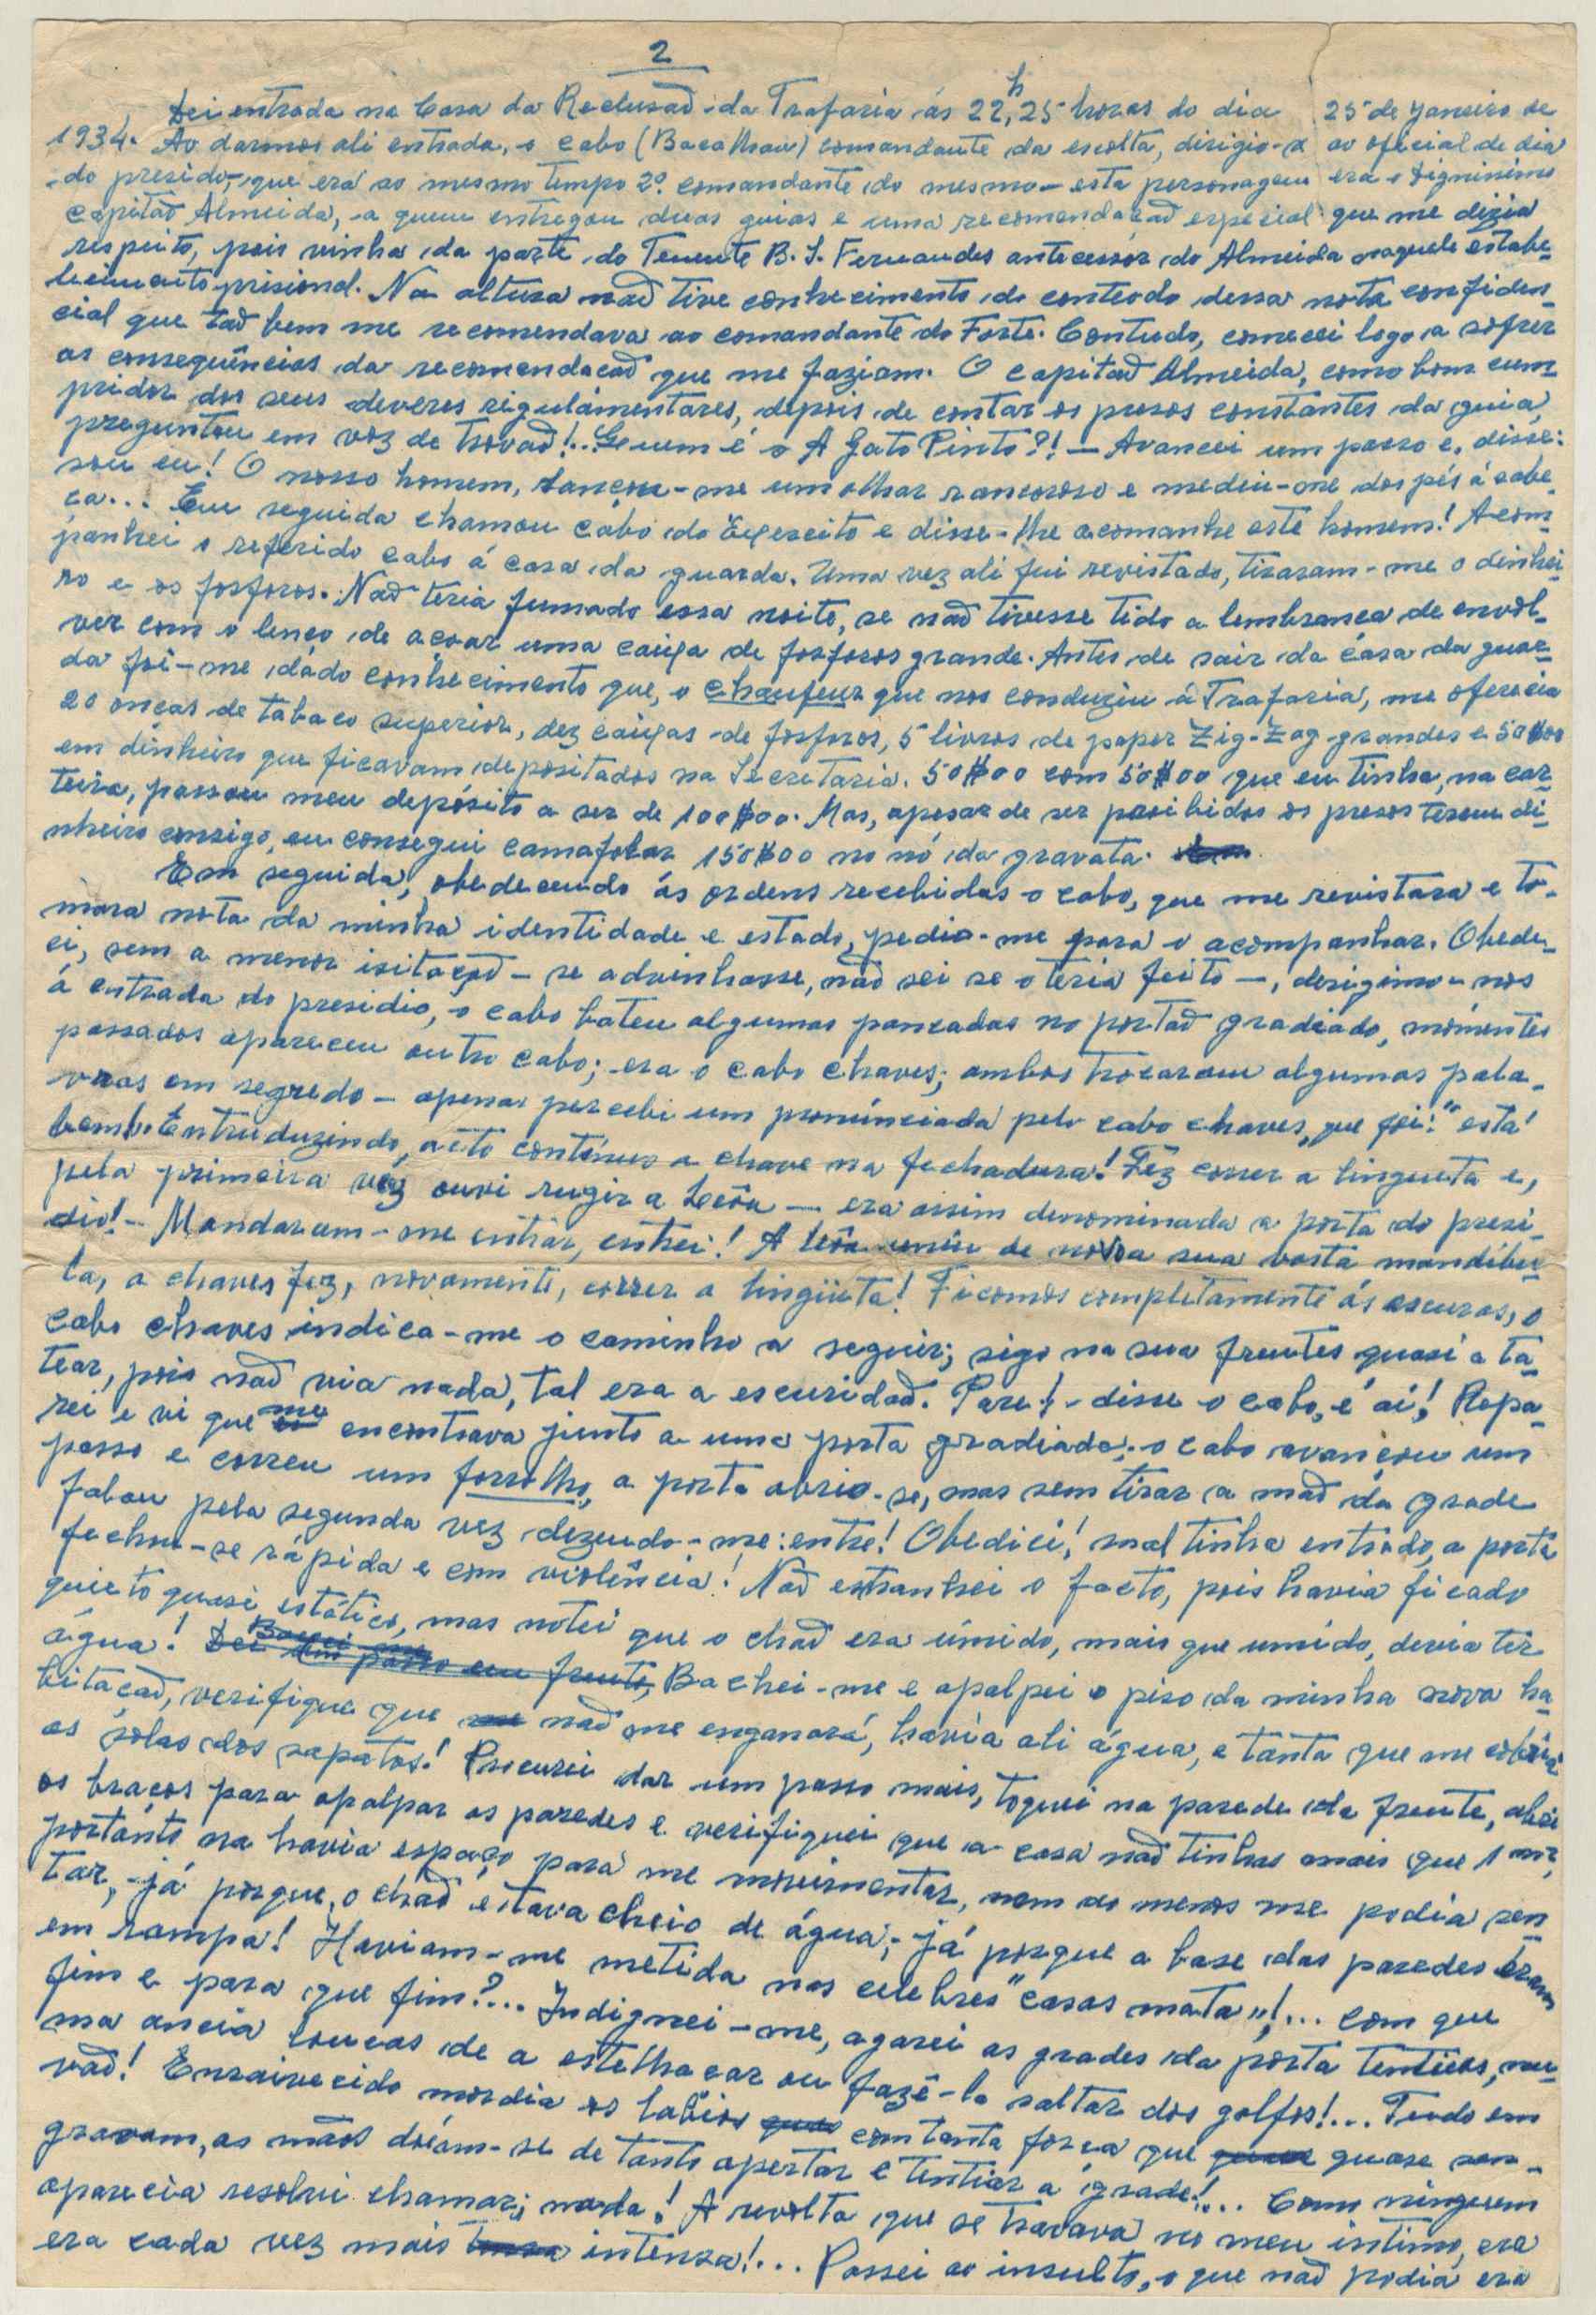 2
Dei entrada na Casa da Reclusão da Trafaria ás 22,25 h horas do dia 25 de Janeiro de
1934. Ao darmos ali entrada, o cabo (Bacalhau) comandante da escolta, dirigio-se ao oficial de dia
do presido, que era ao mesmo tempo 2º. comandante do mesmo - esta personagem era o digníssimo
Capitão Almeida, a quem entregou duas guias e uma recomendação especial que me dizia
respeito, pois vinha da parte do Tenente B. J. Fernandes antecessor do Almeida naquele estabe-
lecimento prisional. Na altura não tive conhecimento do conteodo dessa nota confiden-
cial que tão bem me recomendava ao comandante do Forte. Contudo, comecei logo a sofrer
as consequências da recomendacão que me faziam. O capitão Almeida, como bom cum-
pridor dos seus deveres rigulamentares, depois de contar os presos constantes da guia,
preguntou em voz de trovão!.. Quem é o A Gato Pinto?! — Avancei um passo e, disse:
sou eu! O nosso homem, lançou-me um olhar rancoroso e mediu-me dos pés á cabe-
ça... Em seguida chamou cabo do Exercito e disse-lhe acomanhe este homem! Acom-
panhei o referido cabo á casa da guarda. Uma vez ali fui revistado, tiraram-me o dinhei-
ro e os fosforos. Não teria fumado essa noite, se não tivesse tido a lembranca de envol-
ver com o lenço de açoar uma caixa de fosforos grande. Antes de sair da cása da guar-
da foi-me dádo conhecimento que, o chaufeur que nos conduziu á Trafaria, me oferecia
20 onças de tabaco superior, dez caixas de fosforos, 5 livros de paper Zig-Zag grandes e 50$00
em dinheiro que ficavam depositados na Secretaria. 50$00 com 50$00 que eu tinha, na car-
teira, passou meu depósito a ser de 100$00. Mas, apesar de ser proibidos os presos terem di-
nheiro consigo, eu consegui camafolar 150$00 no nó da gravata.
Em seguida, obedecendo ás ordens recebidas o cabo, que me revistara e to-
mara nota da minha identidade e estado, pedio-me para o acompanhar. Obede-
ci, sem a menor isitação - se advinhasse, não sei se o teria feito -, dirigimo-nos
á entrada do presidio, o cabo bateu algumas pancadas no portão gradiado, mómentos
passados apareceu outro cabo; era o cabo chaves; ambos trocaram algumas pala-
vras em segredo - apenas percebi um pronúnciada pelo cabo chaves, que foi: "está
bem. Entruduzindo, acto contínuo a chave na fechadura! Fêz correr a lingueta e,
pela primeira vez ouvi rugir a Leôa — era assim denominada a porta do presi-
dio! - Mandaram-me entrar, entrei! A leôa uniu de novo a sua vasta mandíbu-
la, a chaves fez, novamente, correr a lingüeta! Ficamos completamente ás escuras, o
cabo chaves indica-me o caminho a seguir; sigo na sua frentes quasi a ta-
tear, pois não via nada, tal era a escuridão. Pare! - disse o cabo, é aí! Repa-
rei e vi que me encontrava junto a uma porta gradiada; o cabo avançou um
passo e correu um forrolho, a porta abrio-se, mas sem tirar a mão da grade
falou pela segunda vez dizendo-me: entre! Obedici! mal tinha entrado, a porta
fechou-se rápida e com violência! Não estranhei o facto, pois havia ficado
quieto quasi estático, mas notei que o chão era úmido, mais que umido, devia ter
água! Dei um passo em frente, Bachei-me e apalpei o piso da minha nova ha-
bitação, verifique que não me enganará, havia ali água, e tanta que me cobria
as solas dos sapatos! Procurei dar um passo mais, toquei na parede da frente, abri
os braços para apalpar as paredes e verifiquei que a casa não tinhas mais que 1 m²,
portanto na havia espaço para me movimentar, nem ao menos me podia sen-
tar, - já porque, o chão estava cheio de água, - já porque a base das paredes eram
em rampa! Haviam-me metida nas celebres "casas mata"!... com que
fim e para que fim?... Indignei-me, agarei as grades da porta tentiias, nu-
ma ancia loucas de a estelhaçar ou fazê-la saltar dos golfos!... Tudo em
vão! Enraivecido mordia os labios com tanta força que quase san-
gravam, as mãos dóiam-se de tanto apertar e tentiar a grade!... Como ninguem
aparecia resolvi chamar; nada! A revolta que se travava no meu intimo, era
era cada vez mais intensa!... Passei ao insulto, o que não podia era